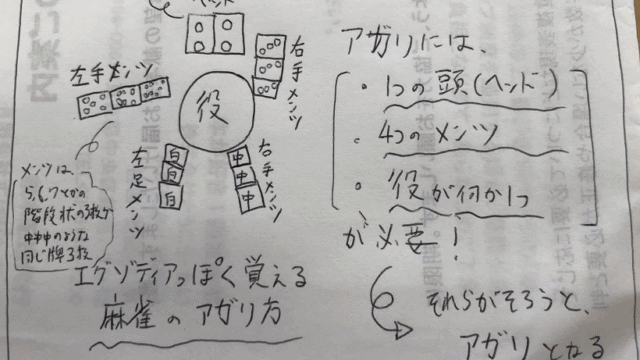 ヘッド
左手メンツ
右手メンツ
役
左足メンツ
白
白
白
中
中
中
右手メンツ
メンツは
5,6,7とかの
階段状の3枚か
中中中のような
同じ牌3枚
エグゾディアっぽく覚える
麻雀のアガリ方
アガリには、
・1つの頭(ヘッド)
・4つのメンツ
・役が何か1つ
が必要!
それらがそろうと、
アガリとなる